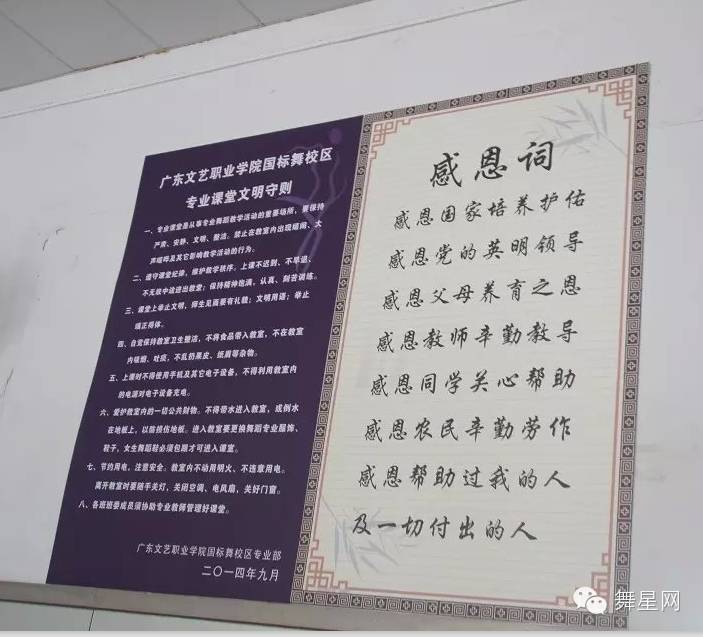 广东文艺职业学院国标舞校区
专业课堂文明守则
一、专业课堂是从事专业舞蹈教学活动的重要场所，要保持
严肃、安静、文明、整洁。禁止在教室内出现嬉闹、大
声喧哗及其它影响教学活动的行为。
二、遵守课堂纪律，维护教学秩序。上课不迟到、不早退、
不无故中途进出教室；保持精神饱满，认真、刻苦训练。
三、课堂上举止文明，师生见面要有礼貌；文明用语；举止
端正得体。
四、自觉保持教室卫生整洁，不将食品带入教室，不在教室
内吸烟、吐痰，不乱扔果皮、纸屑等杂物。
五、上课时不得使用手机及其它电子设备，不得利用教室内
的电源对电子设备充电。
六、爱护教室内的一切公共财物。不得带水进入教室，或倒水
在地板上，以防损伤地板。进入教室要更换舞蹈专业服饰、
鞋子，女生舞蹈鞋必须包跟才可进入课室。
七、节约用电，注意安全。教室内不动用明火、不违章用电。
离开教室时要随手关灯，关闭空调、电风扇，关好门窗。
八、各班班委成员须协助专业教师管理好课堂。
广东文艺职业学院国标舞校区专业部
二〇一四年九月
感恩词
感恩国家培养护佑
感恩党的英明领导
感恩父母养育之恩
感恩教师辛勤教导
感恩同学关心帮助
感恩农民辛勤劳作
感恩帮助过我的人
及一切付出的人
舞星网